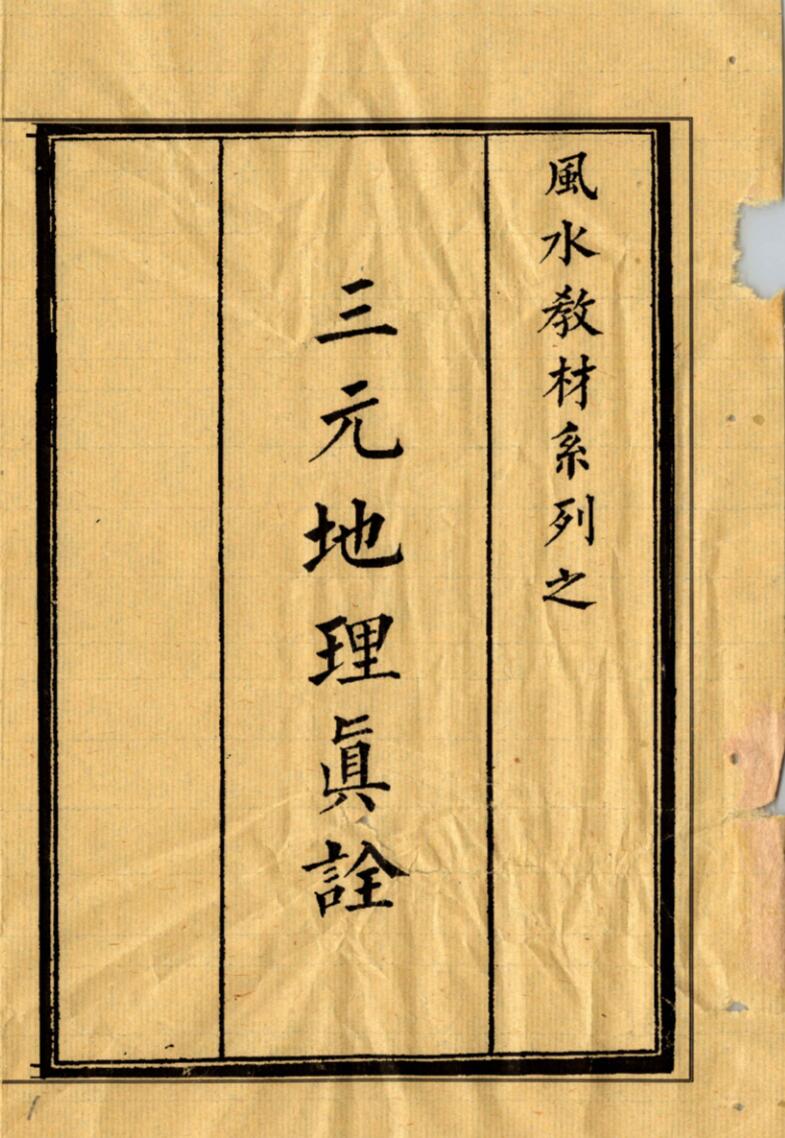 風水教材系列之
三元地理眞詮